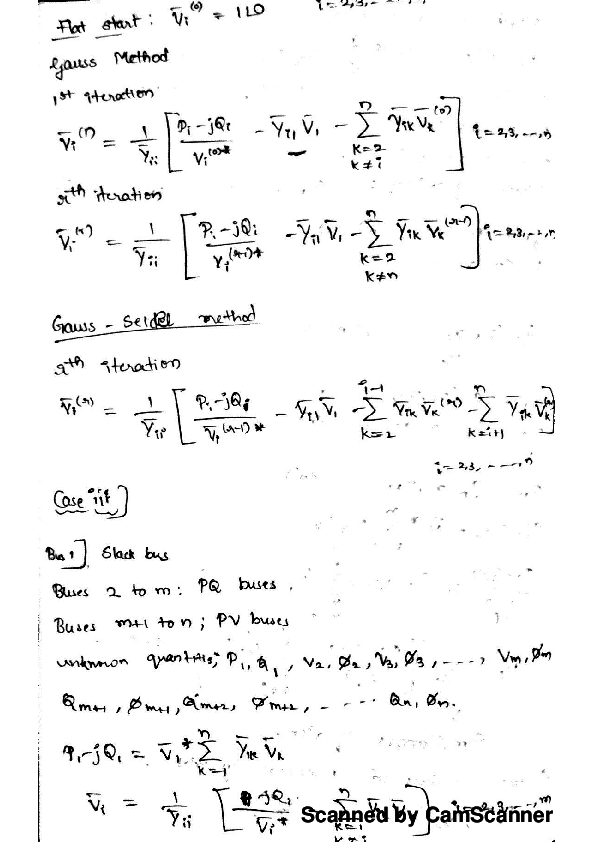 Flat start: V̄i^(0) = 1∠0 i = 2,3, - - -
Gauss Method
1st iteration
V̄i^(1) = 1/Ȳii [ (Pi - jQi)/V̄i^(0)* - Ȳi1 V̄1 - Σ_{k=2, k≠i}^{n} Ȳik V̄k^(0) ] i = 2,3, ---, n
r^th iteration
V̄i^(r) = 1/Ȳii [ (Pi - jQi)/Vi^(r-1)* - Ȳi1 V̄1 - Σ_{k=2, k≠n}^{n} Ȳik V̄k^(r-1) ] i = 2,3, - -, n
Gauss - Seidel method
r^th iteration
V̄i^(r) = 1/Ȳii [ (Pi - jQi)/V̄i^(r-1)* - Ȳi1 V̄1 - Σ_{k=2}^{i-1} Ȳik V̄k^(r) - Σ_{k=i+1}^{n} Ȳik V̄k ]
i = 2,3, - - - -, n
Case iii]
Bus 1] Slack bus
Buses 2 to m : PQ buses .
Buses m+1 to n ; PV buses
unknown P1, Q1, V2, Ø2, V3, Ø3, - - - -, Vm, Øm
Qm+1, Øm+1, Qm+2, Øm+2, - - - - - Qn, Øn.
P1 - jQ1 = V̄1* Σ_{k=1}^{n} Ȳ1k V̄k
V̄i = 1/Ȳii [ - jQi / V̄i* Σ k=1 ] i = 2,3, ---, m
Scanned by CamScanner